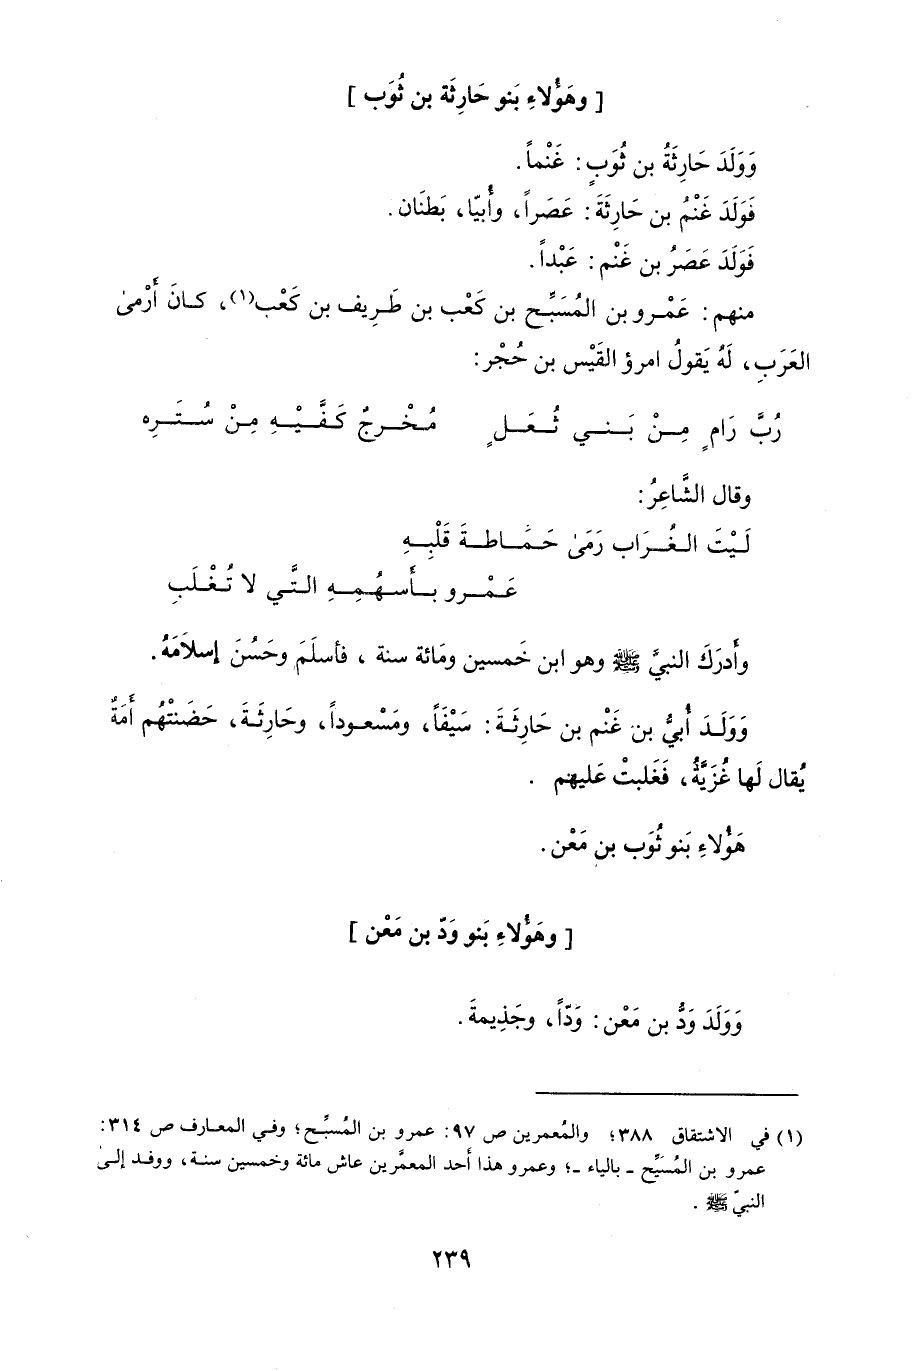 [ وهَؤُلاءِ بَنو حَارِثَة بن ثُوَب ]
وَوَلَدَ حَارِثَةُ بن ثُوَبٍ : غَنْماً .
فَوَلَدَ غَنْمُ بن حَارِثَةَ : عَصَراً ، وأُبيّا ، بَطنَان .
فَوَلَدَ عَصَرُ بن غَنْم : عَبْداً .
منهم : عَمْرو بن المُسَبِّح بن كَعْب بن طَرِيف بن كَعْب(١) ، كانَ أَرْمىٰ
العَرَبِ ، لَهُ يَقولُ امرؤ القَيْس بن حُجْر :
رُبَّ رَامٍ مِنْ بَني ثُعَلٍ مُخْرِجٌ كَفَّيْهِ مِنْ سُتَرِه
وقال الشَّاعِرُ :
لَيْتَ الغُرَاب رَمَىٰ حَمَاطةَ قَلْبِه
عَمْرو بأَسهُمِهِ التَّي لا تُغْلَبِ
وأَدرَكَ النبيَّ ﷺ وهو ابن خَمسين ومَائة سنة ، فأسلَمَ وحَسُنَ إسلاَمَهُ .
وَوَلَدَ أُبيُّ بن غَنْم بن حَارِثَةَ : سَيْفَاً ، ومَسْعوداً ، وحَارِثَةَ ، حَضَنتْهُم أَمَةٌ
يُقال لَها غُزَيَّةُ ، فَغَلبتْ عَليهم .
هَؤُلاءِ بَنو ثُوَب بن مَعْن .
[ وهَؤُلاءِ بَنو وَدّ بن مَعْن ]
وَوَلَدَ وَدُّ بن مَعْن : وَدّاً ، وجَذِيمةَ .
(١) في الاشتقاق ٣٨٨ ؛ والمُعمرين ص ٩٧ : عمرو بن المُسبِّح ؛ وفي المعارف ص ٣١٤ :
عمرو بن المُسَيِّح ـ بالياء ـ ؛ وعمرو هذا أحد المعمَّرين عاش مائة وخمسين سنة ، ووفد إلىٰ
النبيّ ﷺ .
٢٣٩